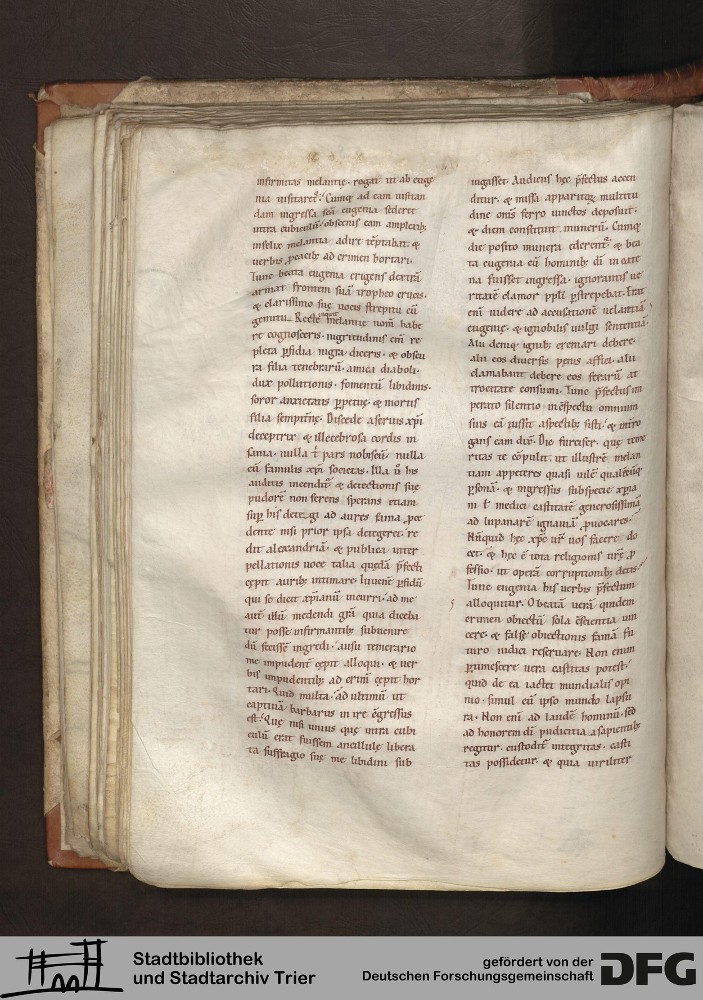 infirmitas melantię. rogat ut ab euge
nia uisitaret᷑. Cumq; ad eam uisitan
dam ingressa seu᷑ eugenia sederet
intra cubiculū. obscenis eam amplectib;
infelix melantia adire tēptabat. &
uerbis ꝓcacib; ad crimen hortari.
Tunc beata eugenia erigens dextrā
armat frontem suā tropheo crucis.
& clarissimo suę uocis strepitu cū
gemitu. Recte melantię nom̄ habe
re cognosceris. nigritudinis eni᷑ re
pleta ꝑfidia nigra diceris. & obscu
ra filia tenebrarū. amica diaboli.
dux pollutionis. fomentū libidinis.
soror anxietatis ꝑpetuę. & mortis
filia sempit᷑nę. Discede a seruis xp̄i
deceptrix & illecebrosa cordis in
sania. nulla t᷑ pars nobiscū. nulla
cū famulis xp̄i societas. Illa ū his
auditis incendit᷑ & detectionis suę
pudorē non ferens sperans etiam
sup̄ his detegi ad aures fama ꝓce
dente nisi prior ipsa detegeret. re
dit alexandriā. & publica inter
pellationis uoce talia quędā p̄fecti
cępit aurib; intimare. Iuuenē ꝑfidū
qui se dicit xp̄ianū incurri. ad me
aut᷑ illū medendi gr̄a quia dicebat
tur posse infirmantib; subuenire
dū fecissē ingredi. ausu temerario
me impudent᷑ cępit alloqui. & uer
bis impudentib; ad crim̄ cępit hor
tari. Quid multa. ad ultimū ut
captiuā barbarus in me ē gressus
est. Quę nisi unius quę intra cubi
culū erat fuissem ancillulę libera
ta suffragio suę me libidini sub
iugasset. Audiens hęc p̄fectus accen
ditur. & missa apparitorę multitu
dine oms̄ ferro uinctos deposuit.
& diem constituit munerū. Cumq;
die posito munera ederent᷑. & bea
ta eugenia cū hominib; dī in cate
na fuisset ingressa. ignorantis ue
ritatē clamor ppl̄i ꝑstrepebat. Erat
eni᷑ uidere ad accusationē melantiā
eugenię. & ignobilis uulgi sententiā.
Alii deniq; ignib; cremari debere.
alii eos diuersis pęnis affici. alii
clamabant debere eos ferarū at
trocitate consumi. Tunc p̄fectus im
perato silentio in cs̄pectu omnium
suis eū iussit aspectib; sisti. & int᷑ro
gans eam dix̄. Dic furcifer. quę teme
ritas te cōpulit. ut illustrē melan
tiam appeteres quasi uilē qualēcūq;
ꝑsonā. & ingressus sub specie xp̄ia
ni t᷑ medici castitatē generosissimā
ad lupanarē ignauiā ꝓuocares.
Nūquid hęc xp̄c ur̄ uos facere do
cet. & hęc ē tota religionis ur̄ę ꝓ
fessio. ut operā corruptionib; detis.
Tunc eugenia his uerbis p̄fectum
alloquitur. O beatā uerā quidem
crimen obiectū sola ēscientia uin
cere. & falsę obiectionis famā fu
turo iudici reseruare. Non enim
p̄sumescere uera castitas potest.
quid de ea iactet mundialis opi
nio. simul cū ipso mundo lapsu
ra. Non eni᷑ ad laudē hominū. sed
ad honorem dī pudicitia a sapientib;
regitur. custodit᷑ integritas. casti
tas possidetur. & quia uiriliter
Stadtbibliothek
und Stadtarchiv Trier
gefördert von der
Deutschen Forschungsgemeinschaft
DFG